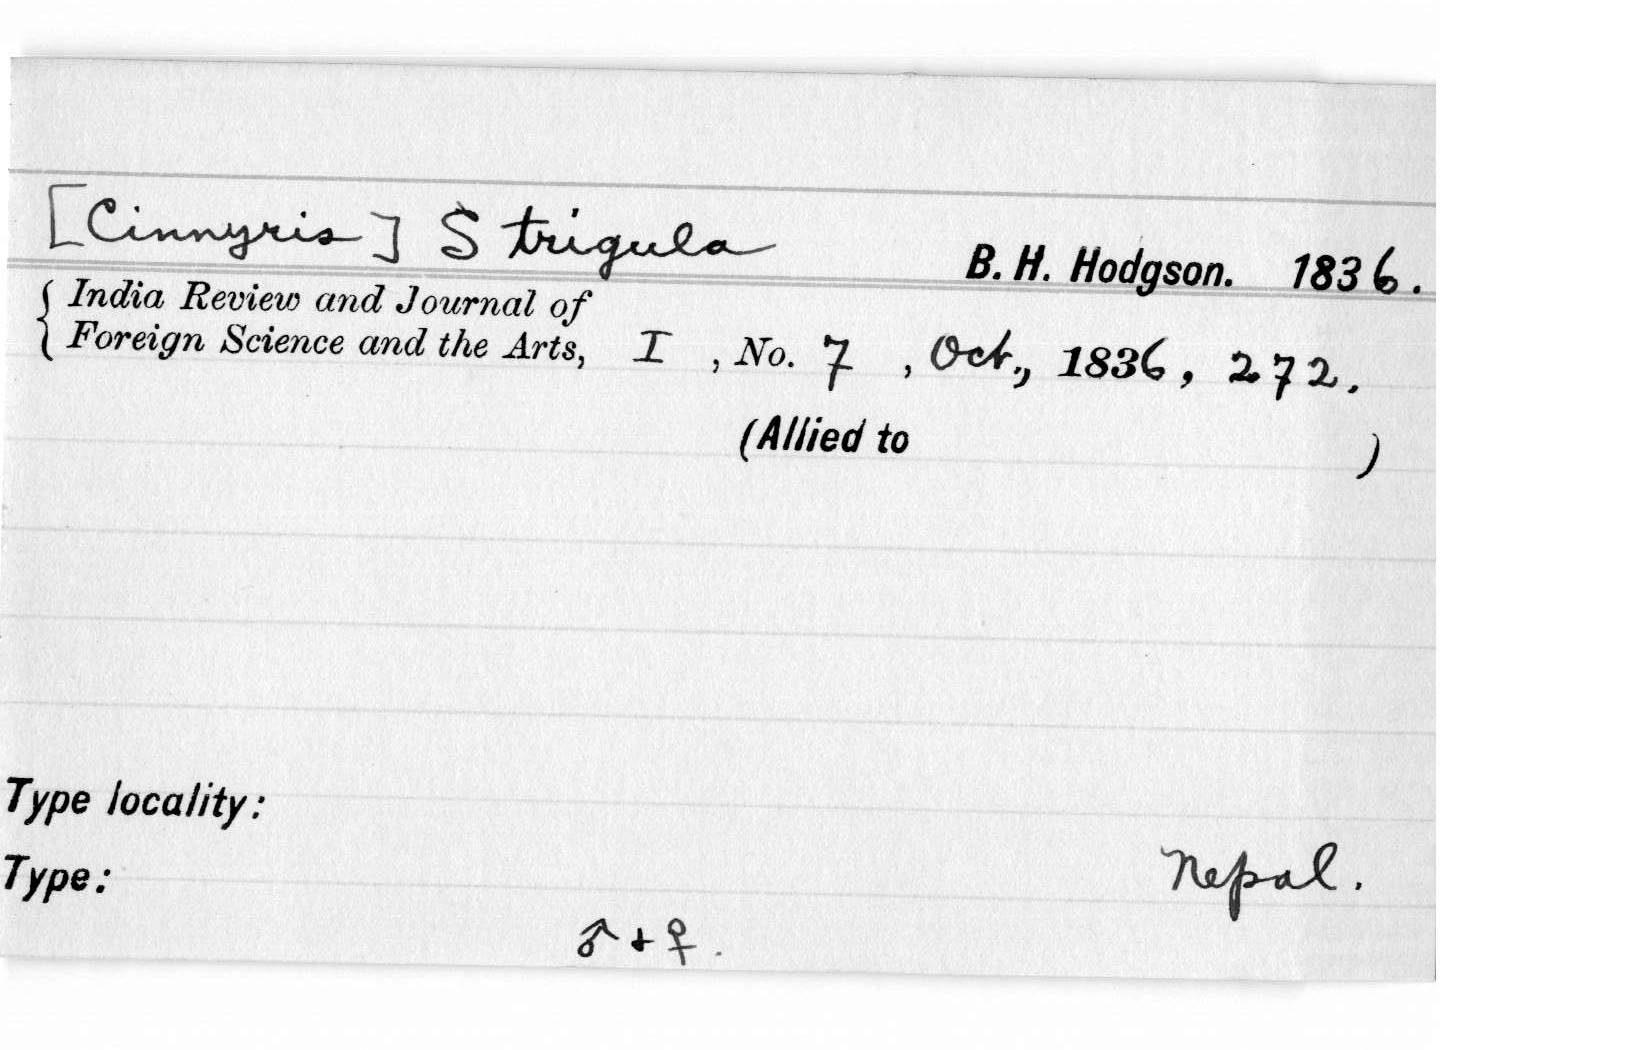 [Cinnyris] Strigula
B. H. Hodgson. 1836.
India Review and Journal of
Foreign Science and the Arts, I , No. 7 , Oct., 1836, 272.
(Allied to )
Type locality:
Nepal.
Type:
♂ + ♀.